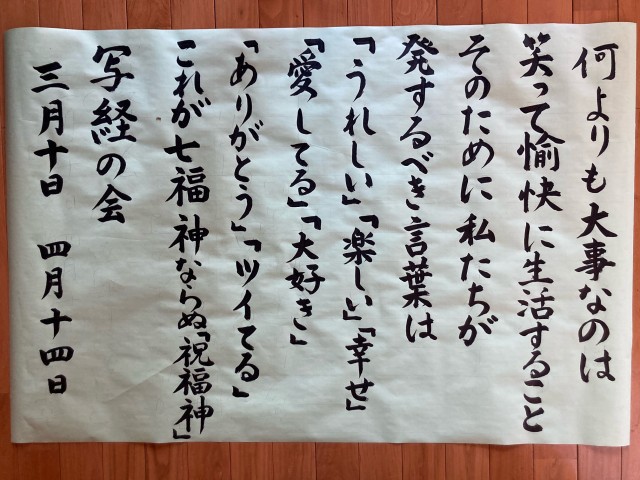 何よりも大事なのは
笑って愉快に生活すること
そのために私たちが
発するべき言葉は
「うれしい」「楽しい」「幸せ」
「愛してる」「大好き」
「ありがとう」「ツイてる」
これが七福神ならぬ「祝福神」
写経の会
三月十日 四月十四日